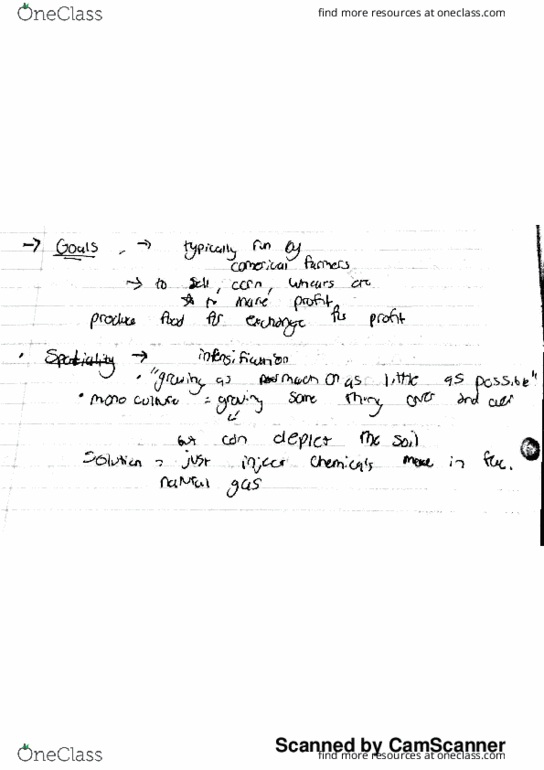 OneClass
find more resources at oneclass.com
→ Goals → typically run by
comerical farmers
→ to sell, corn, etc
→ make profit
produce food for exchange for profit
• Spatiality → intensification
• "growing as much on as little as possible"
• mono culture = growing same thing over and over
but can deplet the soil
Solution = just inject chemicals made in
natural gas
Scanned by CamScanner
OneClass
find more resources at oneclass.com